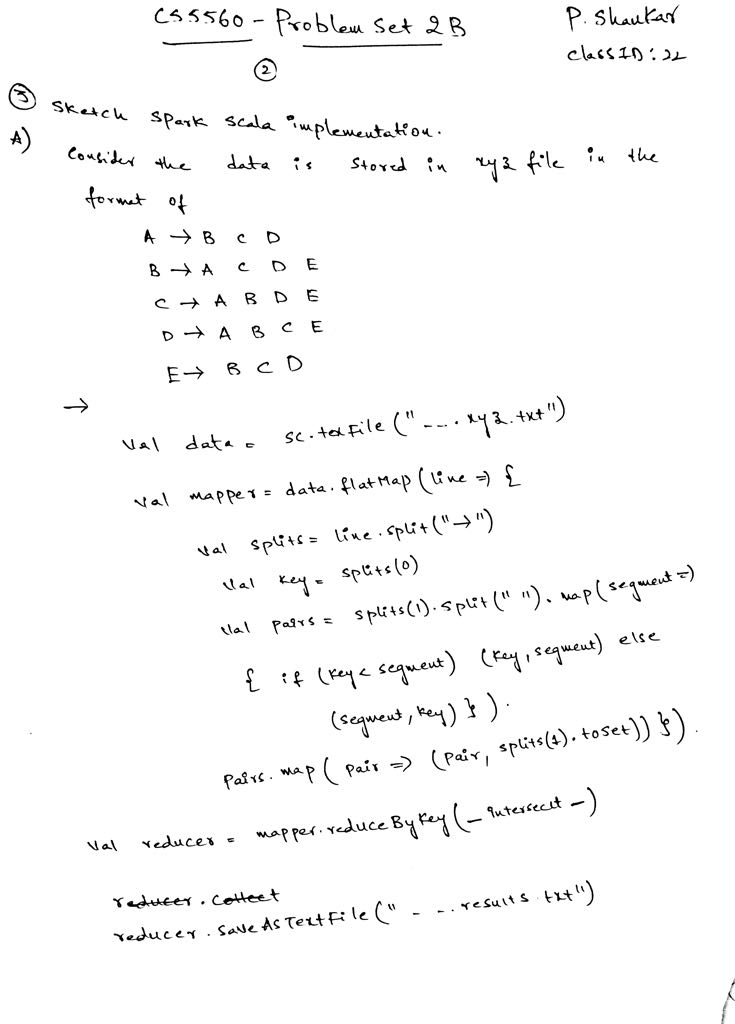 CS5560 - Problem Set 2B
P. Shankar
ClassID: 22
②
③ Sketch spark scala implementation.
A) Consider the data is stored in xyz file in the
format of
A → B C D
B → A C D E
C → A B D E
D → A B C E
E → B C D
→
Val data = sc.texFile("--.. xyz.txt")
Val mapper = data.flatMap(line => {
Val splits = line.split("→")
Val key = splits(0)
Val pairs = splits(1).split(" ").map(segment =>
{ if (key < segment) (key, segment) else
(segment, key) } ).
pairs.map( pair => (pair, splits(1).toset)) }).
Val reducer = mapper.reduceByKey(_ intersect _)
reducer.collect
reducer.saveAsTextFile("- -.. results.txt")